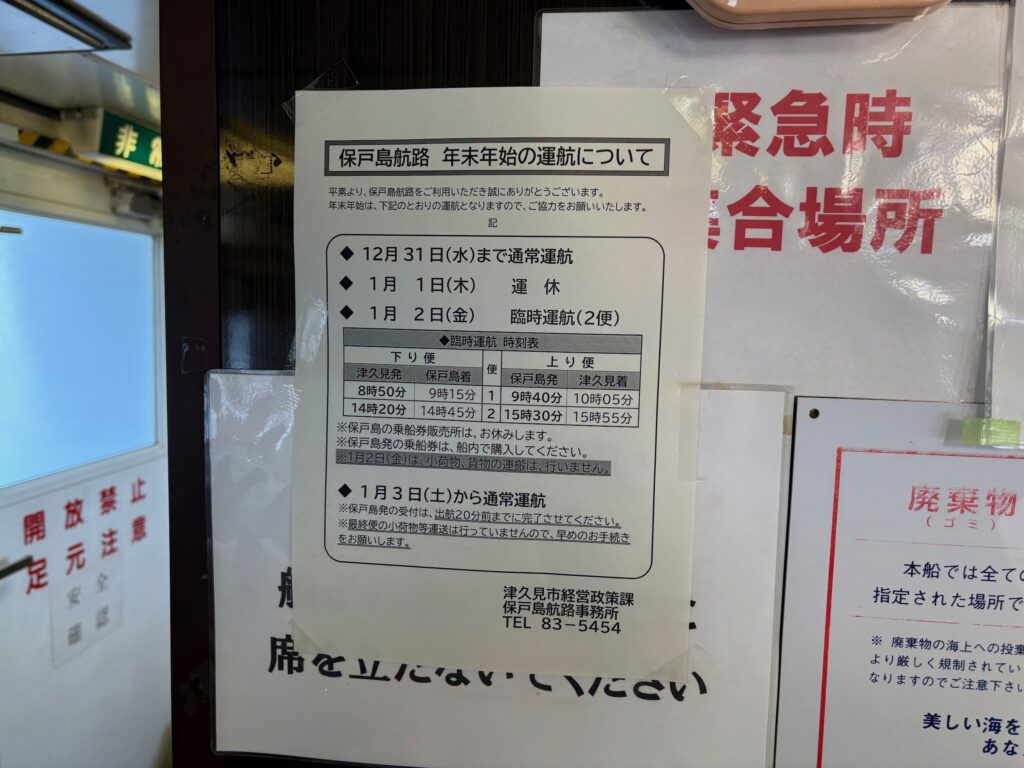 保戸島航路 年末年始の運航について
平素より、保戸島航路をご利用いただき誠にありがとうございます。
年末年始は、下記のとおりの運航となりますので、ご協力をお願いいたします。
記
◆ 12月31日(水)まで通常運航
◆ 1月 1日(木) 運 休
◆ 1月 2日(金) 臨時運航(2便)
◆臨時運航 時刻表
下り便 便 上り便
津久見発 保戸島着 保戸島発 津久見着
8時50分 9時15分 1 9時40分 10時05分
14時20分 14時45分 2 15時30分 15時55分
※保戸島の乗船券販売所は、お休みします。
※保戸島発の乗船券は、船内で購入してください。
※1月2日(金)は、小荷物、貨物の運搬は、行いません。
◆ 1月3日(土)から通常運航
※保戸島発の受付は、出航20分前までに完了させてください。
※最終便の小荷物等運送は行っていませんので、早めのお手続き
をお願いします。
津久見市経営政策課
保戸島航路事務所
TEL 83-5454
緊急時
集合場所
席を立たないでください
非常
開放禁止
足元注意
安全
確認
廃棄物
(ゴミ)
本船では全ての
指定された場所で
※ 廃棄物の海上への投棄
より厳しく規制されてい
なりますのでご注意下さい
美しい海を
あな